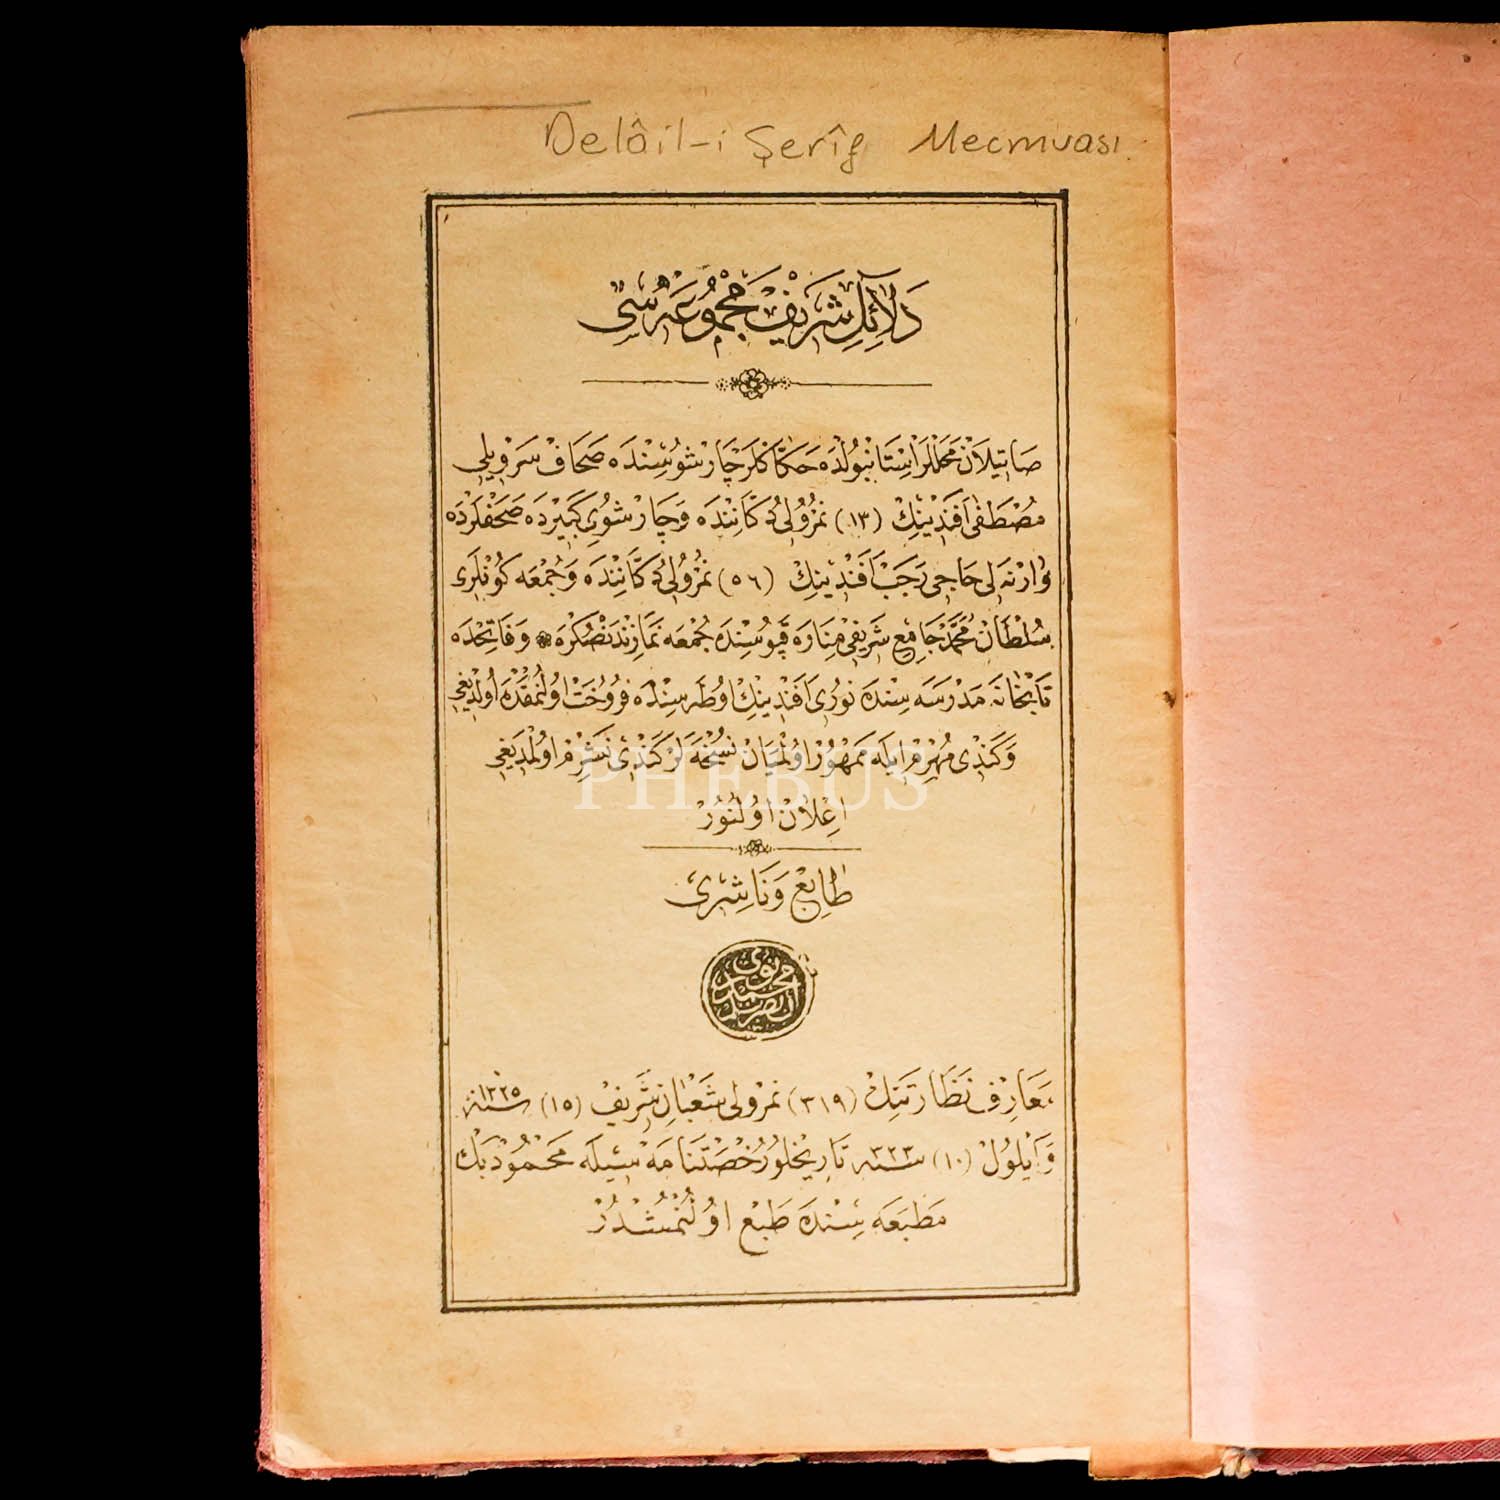 Delâil-i Şerîf Mecmuası
دَلَائِلِ شَرِيفْ مَجْمُوعَه سِى
صَاتِيلَانْ مَحَلْلَرْ اِسْتَانْبُولْدَه حَكَّاكْلَرْ چَارْشُوسِنْدَه صَحَافْ سَرْوِيلِى
مُصْطَفٰى اَفَنْدِينِكْ (١٣) نُمْرُولِى دُكَّانِنْدَه وَچَارْشُوىِ كَبِيرْدَه صَحَفْلَرْدَه
وَارْنَه لِى حَاجِى رَجَبْ اَفَنْدِينِكْ (٥٦) نُمْرُولِى دُكَّانِنْدَه وَجُمْعَه كُونْلَرِى
سُلْطَانْ مُحَمَّدْ جَامِعِ شَرِيفِى مِنَارَه قَپُوسِنْدَه جُمْعَه نَمَازِنْدَنْصُكْرَه وَفَاتِحْدَه
تَابْخَانَه مَدْرَسَه سِنْدَه نُورِى اَفَنْدِينِكْ اُوطَه سِنْدَه فُرُوخْتْ اُولُنْمَقْدَه اُولْدِيغِى
وَكَنْدِى مُهْرِمْ اِيلَه مَمْهُورْ اُولْمَيَانْ نُسْخَه لَرْ كَنْدِى نَشْرِمْ اُولْمَدِيغِى
اِعْلَانْ اُولُنُورْ
طَابِعْ وَنَاشِرِى
مَعَارِفْ نَظَارَتِنِكْ (٣١٩) نُمْرُولِى شَعْبَانِ شَرِيفْ (١٥) سنه ١٣٢٥
وَاَيْلُولْ (١٠) سنه ٣٢٣ تَارِيخْلُو رُخْصَتْنَامَه سِيلَه مَحْمُودْ بَكْ
مَطْبَعَه سِنْدَه طَبْعْ اُولُنْمُشْدُرْ
PHEBUS